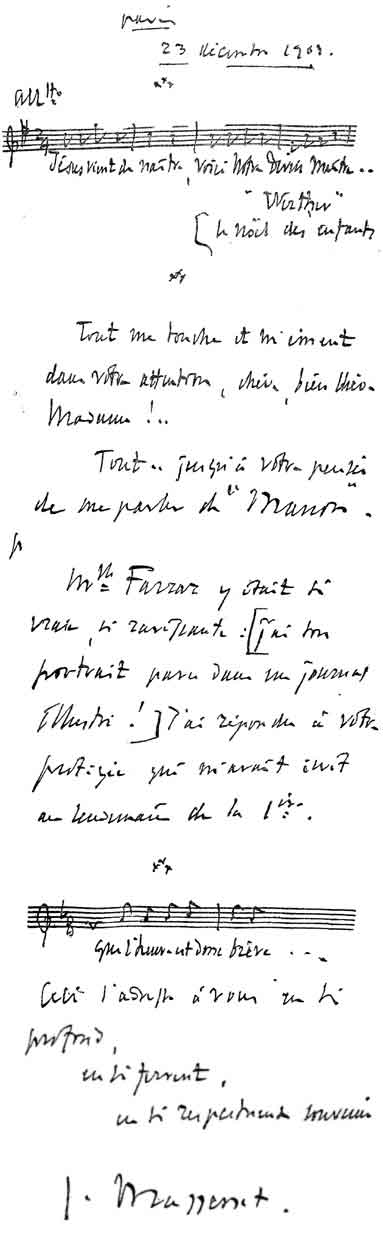 Paris
23 décembre 1908.
All^tto
Jésus vient de naître, voici Notre Divin Maître..
"Werther"
[le Noël des enfants
Tout me touche et m'émeut
dans votre attention, chère, bien chère
Madame !..
Tout.. jusqu'à votre pensée
de me parler de "Manon".
M^lle Farrar y était si
vraie, si ravissante : [j'ai son
portrait paru dans un journal
illustré !] J'ai répondu à votre
protégée qui m'avait écrit
au lendemain de la 1^ère.
que l'heure est donc brève ...
Ceci s'adresse à vous en si
profond,
en si fervent,
en si respectueux souvenir
J. Massenet.